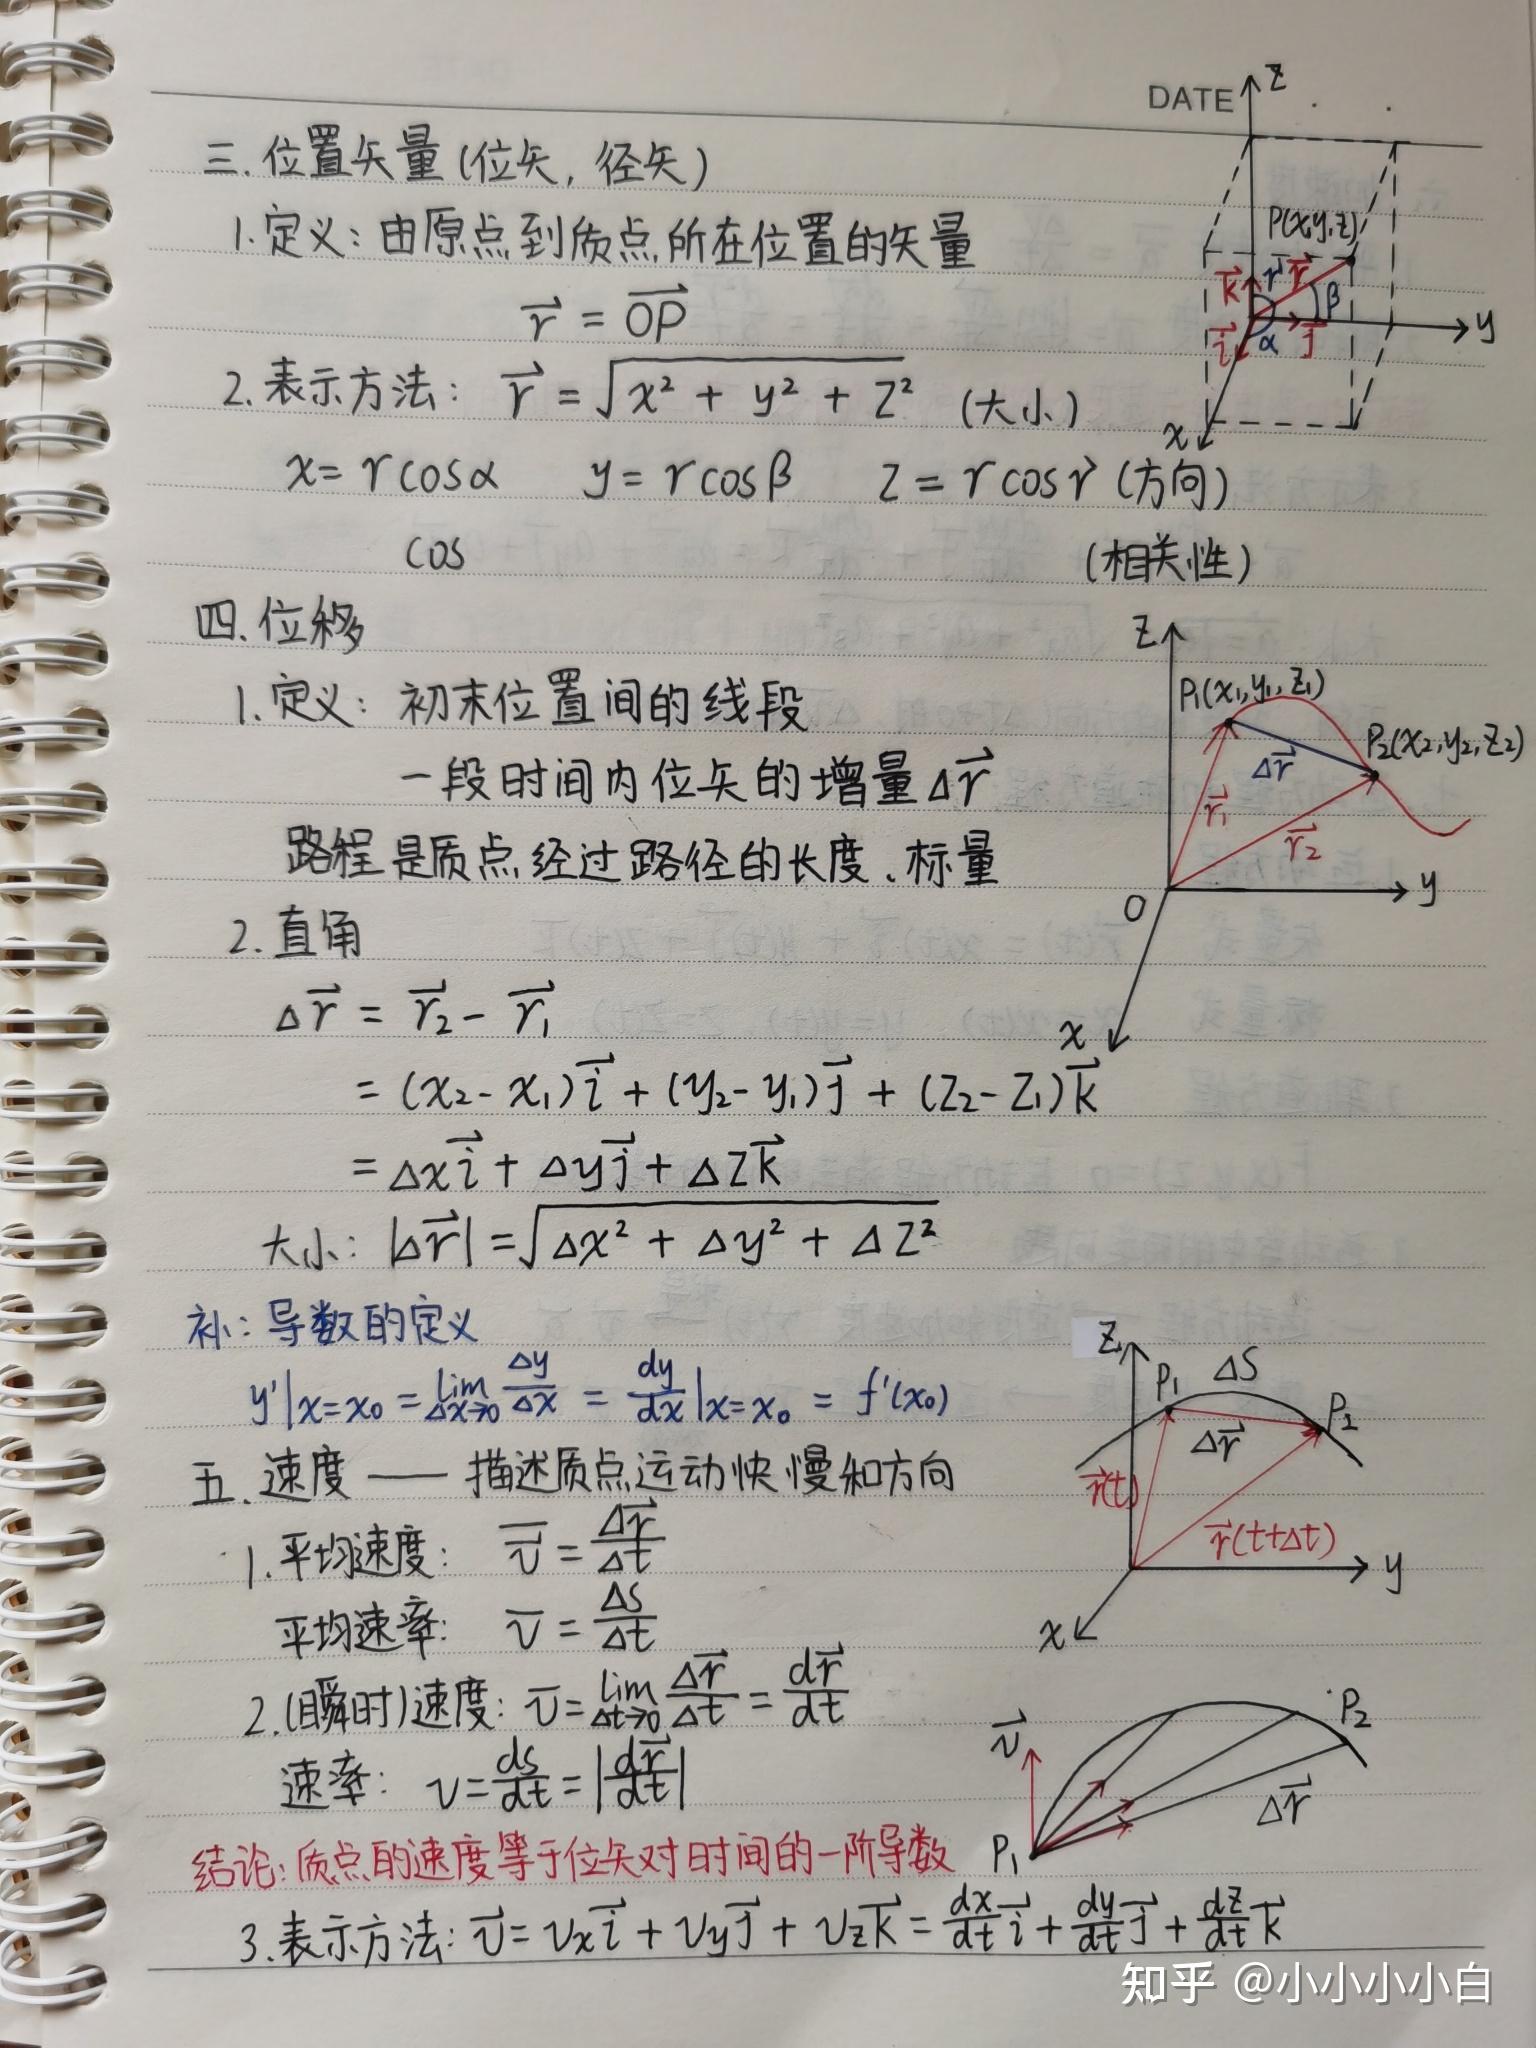 DATE
三.位置矢量(位矢,径矢)
1.定义:由原点到质点所在位置的矢量
r⃗ = OP⃗
2.表示方法: r⃗ = √(x² + y² + z²) (大小)
x = r cosα y = r cosβ z = r cosγ (方向)
cos (相关性)
z
P(x,y,z)
k⃗ γ r⃗ β
i⃗ α j⃗ y
x
四.位移
1.定义: 初末位置间的线段
一段时间内位矢的增量Δr⃗
路程是质点经过路径的长度、标量
2.直角
Δr⃗ = r⃗₂ - r⃗₁
= (x₂-x₁)i⃗ + (y₂-y₁)j⃗ + (z₂-z₁)k⃗
= Δxi⃗ + Δyj⃗ + Δzk⃗
大小: |Δr⃗| = √(Δx² + Δy² + Δz²)
z
P₁(x₁,y₁,z₁)
P₂(x₂,y₂,z₂)
Δr⃗
r⃗₁
r⃗₂
O y
x
补:导数的定义
y'|x=x₀ = lim Δx→0 Δy/Δx = dy/dx|x=x₀ = f'(x₀)
五.速度——描述质点运动快慢和方向
1.平均速度: v̅ = Δr⃗/Δt
平均速率: v̅ = Δs/Δt
2.(瞬时)速度: v̅ = lim Δt→0 Δr⃗/Δt = dr⃗/dt
速率: v = ds/dt = |dr⃗/dt|
结论:质点的速度等于位矢对时间的一阶导数
3.表示方法: v⃗ = vₓi⃗ + vyj⃗ + vzk⃗ = dx/dt i⃗ + dy/dt j⃗ + dz/dt k⃗
z
P₁ ΔS
P₂
Δr⃗
r⃗(t)
r⃗(t+Δt)
y
x
P₂
v⃗
Δr⃗
P₁
知乎 @小小小小白